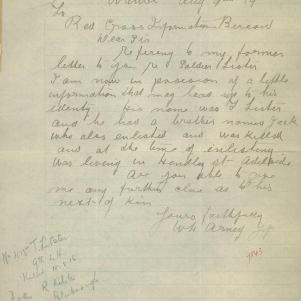 Aug 9th 19
To
Red Cross Information Bureau
Dear Sir
Refering to my former
letter to you re Soldier Lister
I am now in possession of a little
information that may lead up to his
identy his name was T Lister
and he had a brother names Jack
who also enlisted and was killed
and at the time of enlisting
was living in Hindley St Adelaide
Are you able to give
me any further clue as to his
next of Kin
Yours faithfully
W H Arney
7843